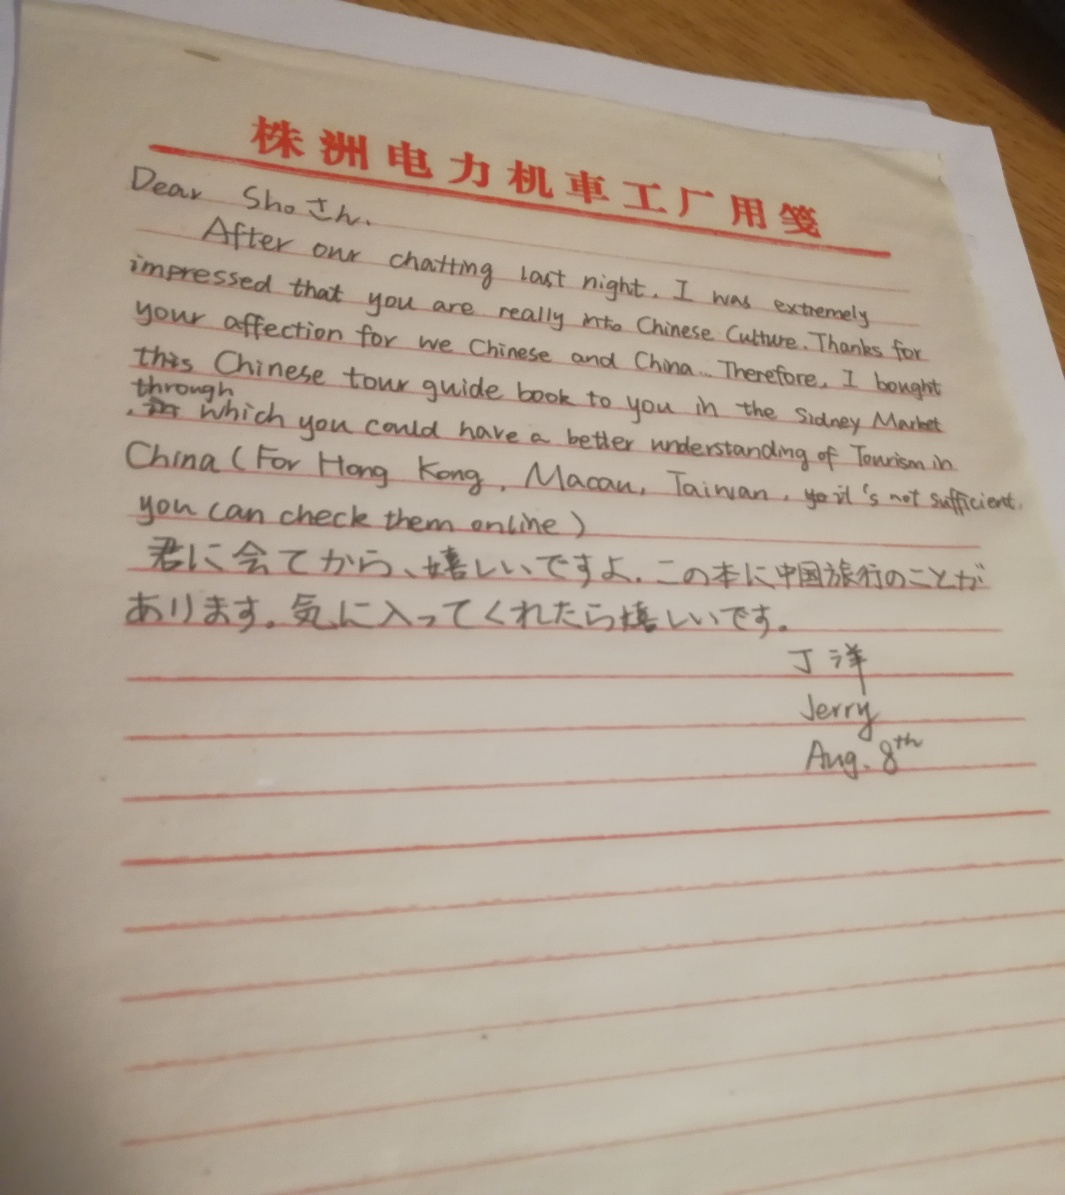 株洲电力机車工厂用笺
Dear Sho さん.
After our chatting last night. I was extremely
impressed that you are really into Chinese Culture. Thanks for
your affection for we Chinese and China.. Therefore, I bought
this Chinese tour guide book to you in the Sidney Market
through
, which you could have a better understanding of Tourism in
China (For Hong Kong, Macau, Taiwan, it's not sufficient,
you can check them online)
君に会てから、嬉しいですよ。この本に中国旅行のことが
あります。気に入ってくれたら嬉しいです。
丁洋
Jerry
Aug. 8th